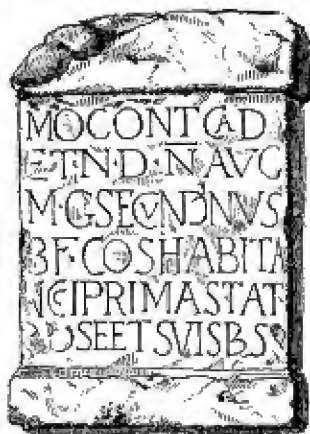 MOGONT CAD
ET·N·D·N̄·AVG
M·G·SECVNDNVS
BF·COSHABITA
NCIPRIMASTAT
SEETSVIS